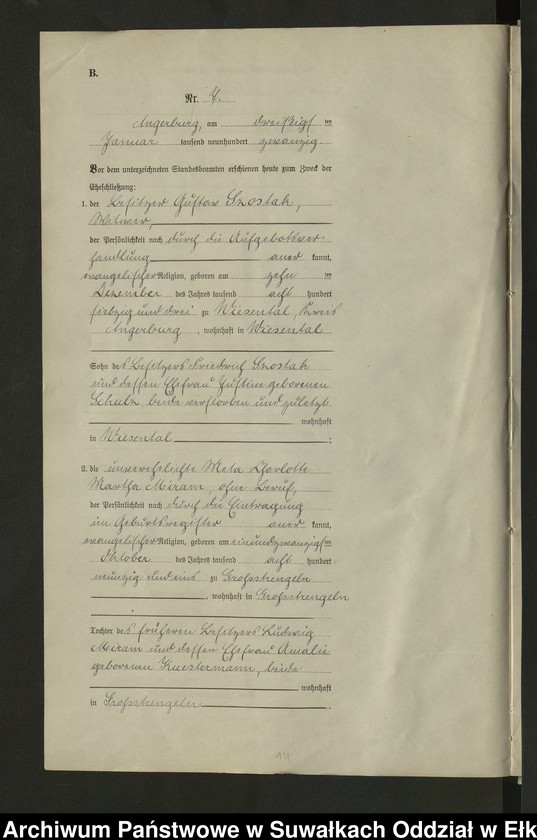 B.
Nr. 7.
Angerburg, am dreißigsten
Januar tausend neunhundert zwanzig.
Vor dem unterzeichneten Standesbeamten erschienen heute zum Zweck der
Eheschließung:
1. der Besitzer Gustav Szostak,
Witwer,
der Persönlichkeit nach durch die Aufgebotsver-
handlung aner kannt,
evangelischer Religion, geboren am zehnten
Dezember des Jahres tausend acht hundert
siebzig und drei zu Wiesental, Kreis
Angerburg, wohnhaft in Wiesental
Sohn des Besitzers Friedrich Szostak
und dessen Ehefrau Justine geborenen
Schulz, beide verstorben und zuletzt
wohnhaft
in Wiesental;
2. die unverehelichte Meta Charlotte
Martha Miram, ohne Beruf,
der Persönlichkeit nach durch die Eintragung
im Geburtsregister aner kannt,
evangelischer Religion, geboren am einundzwanzigsten
Oktober des Jahres tausend acht hundert
neunzig und eins zu Großstrengeln
, wohnhaft in Großstrengeln
Tochter des früheren Besitzers Ludwig
Miram und dessen Ehefrau Amalie
geborenen Kuestermann, beide
wohnhaft
in Großstrengeln.
14
Archiwum Państwowe w Suwałkach Oddział w Ełk